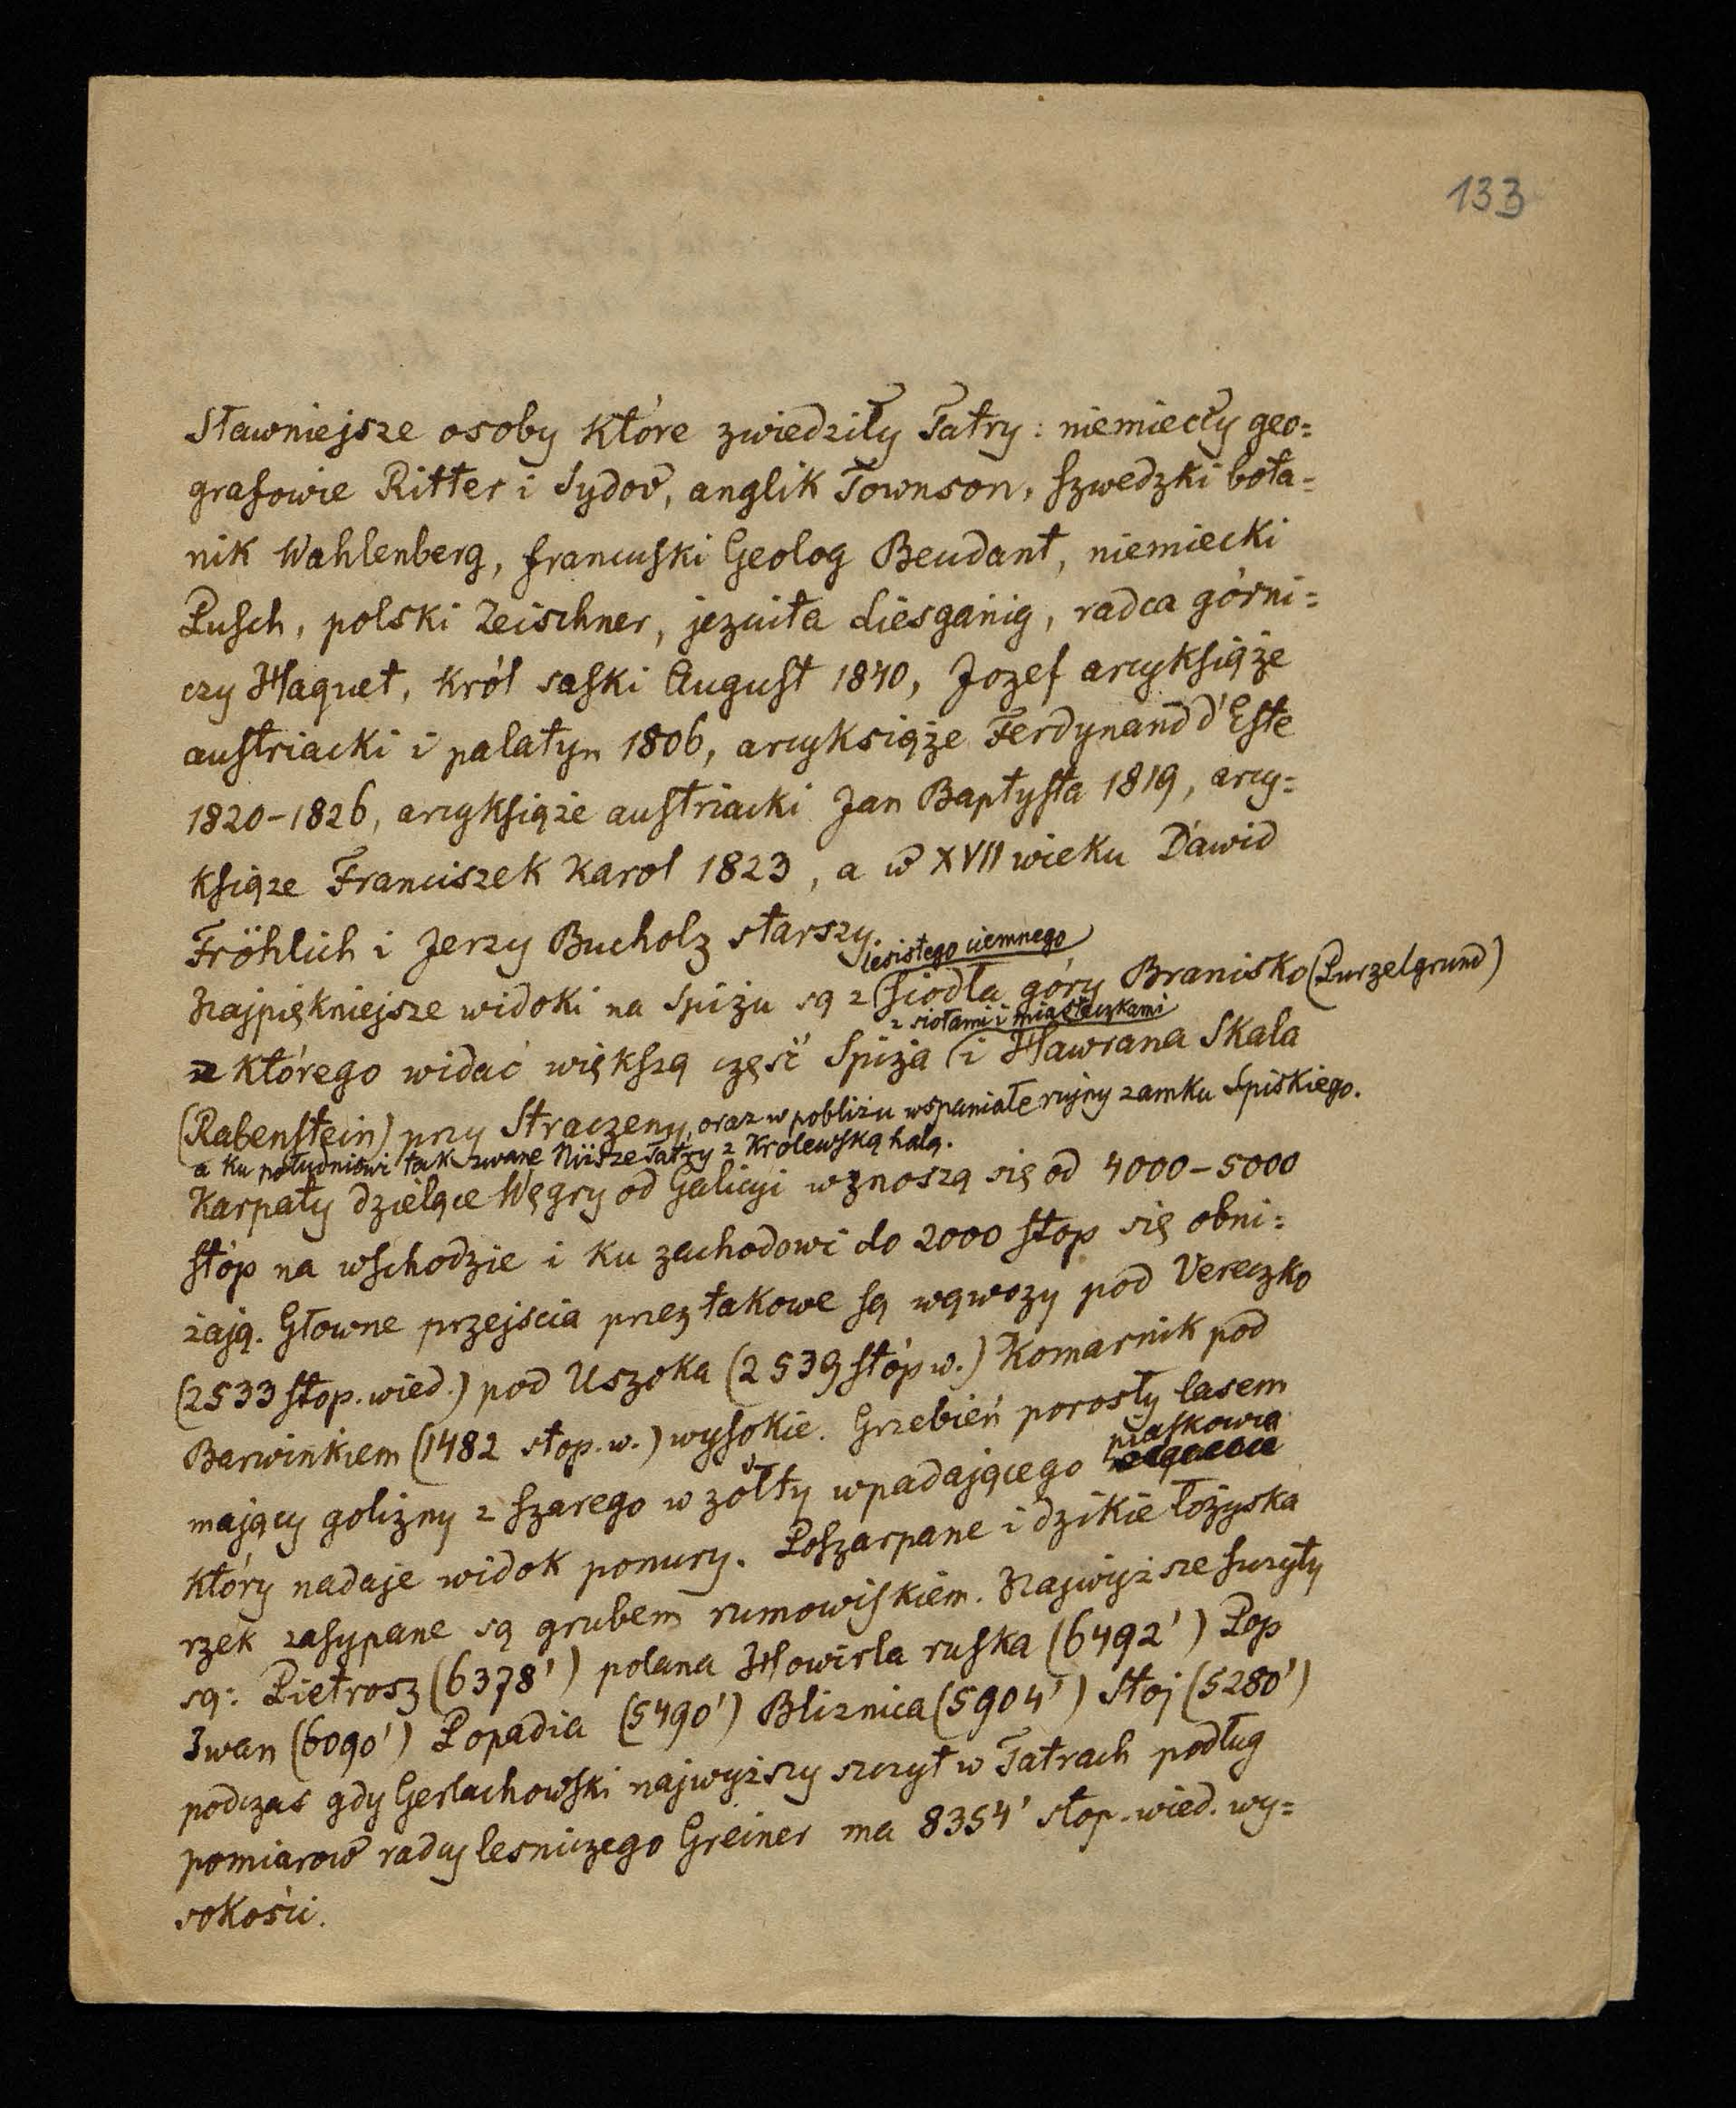 133
Sławniejsze osoby które zwiedziły Tatry: niemieccy geo=
grafowie Ritter i Sydow, anglik Townson, szwedzki bota=
nik Wahlenberg, francuski Geolog Beudant, niemiecki
Pusch, polski Zeischner, jezuita Liesganig, radca górni=
czy Haquet, król saski August 1840, Jozef arcyksiąże
austriacki i palatyn 1806, arcyksiąże Ferdynand d'Este
1820-1826, arcyksiąże austriacki Jan Baptysta 1819, arcy=
ksiąze Franciszek Karol 1823, a w XVII wieku Dawid
Fröhlich i Jerzy Bucholz starszy.
lesistego ciemnego
Najpiękniejsze widoki na Spiżu są z siodła góry Branisko (Purzelgrund)
z siołami i miasteczkami
z którego widać większą część Spiża i Hawrana Skala
(Rabenstein) przy Straczeny, oraz w pobliżu wspaniałe rujny zamku Spiskiego.
a ku południowi tak zwane Niższe Tatry z Królewską halą.
Karpaty dzielące Węgry od Galicyi wznoszą się od 4000-5000
stóp na wschodzie i ku zachodowi do 2000 stop się obni=
żają. Głowne przejscia przez takowe są wąwozy pod Vereczko
(2533 stop. wied.) pod Uszoka (2539 stóp w.) Komarnik pod
Barwinkiem (1482 stop. w.) wysokie. Grzebień porosły lasem
mający golizny z szarego w żółty wpadającego piaskowca
który nadaje widok ponury. Poszarpane i dzikie łożyska
rzek zasypane są grubem rumowiskiem. Najwyższe szczyty
są: Pietrosz (6378') polana Howirla ruska (6492') Pop
Iwan (6090') Popadia (5490') Bliznica (5904') Stoj (5280')
podczas gdy Gerlachowski najwyższy szczyt w Tatrach podług
pomiarow radcy lesniczego Greiner ma 8354' stop. wied. wy=
sokości.